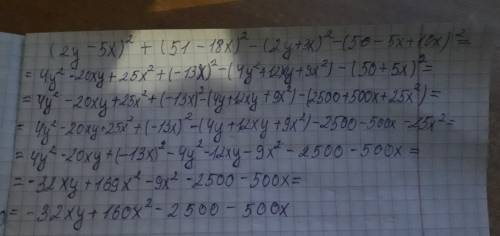 (2y-5x)² + (51-18x)² - (2y+3x)² - (50-5x+10x)² =
= 4y² - 20xy + 25x² + (-13x)² - (4y² + 12xy + 9x²) - (50+5x)² =
= 4y² - 20xy + 25x² + (-13x)² - (4y + 12xy + 9x²) - (2500 + 500x + 25x²) =
= 4y² - 20xy + 25x² + (-13x)² - (4y + 12xy + 9x²) - 2500 - 500x - 25x² =
= 4y² - 20xy + (-13x)² - 4y² - 12xy - 9x² - 2500 - 500x =
= -32xy + 169x² - 9x² - 2500 - 500x =
= -32xy + 160x² - 2500 - 500x